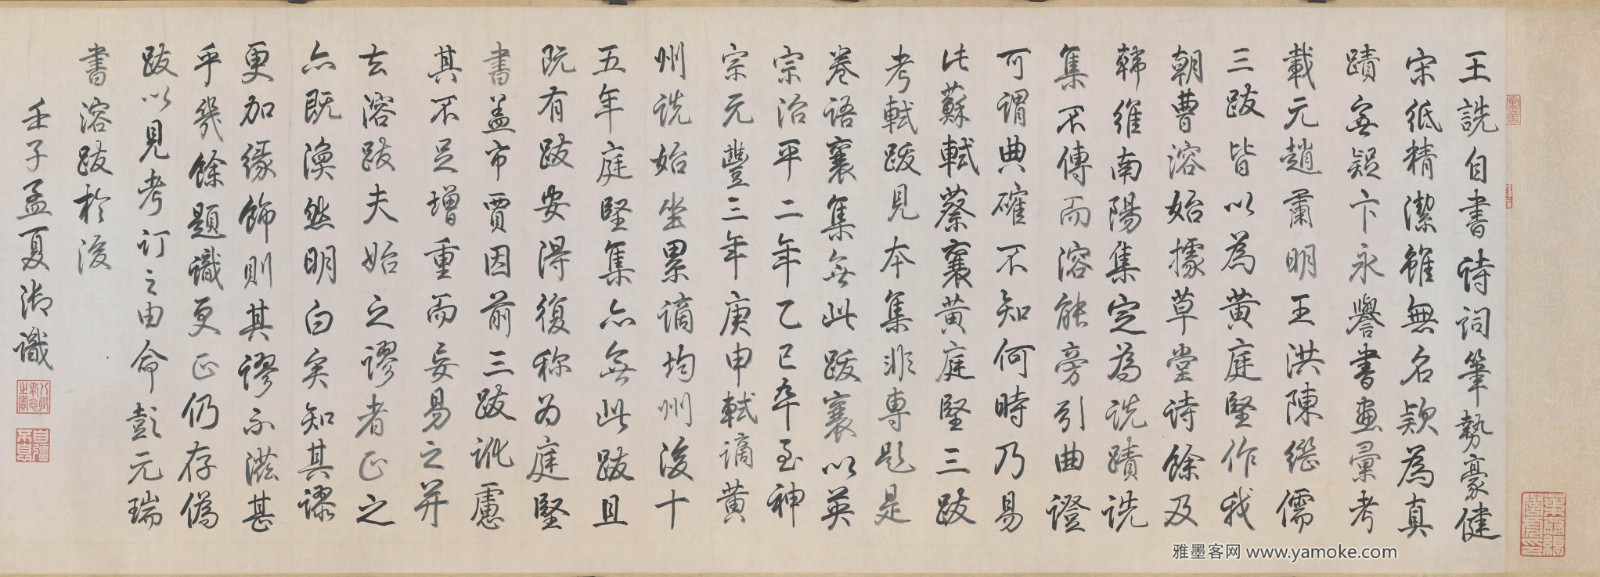 王詵自書詩詞筆勢豪健
宋紙精潔雖無名款為真
蹟無疑卞永譽書畫彙考
載元趙肅明王洪陳繼儒
三跋皆以為黃庭堅作我
朝曹溶始據草堂詩餘及
韓維南陽集定為詵蹟詵
集不傳而溶能旁引曲證
可謂典確不知何時乃易
此蘇軾蔡襄黃庭堅三跋
考軾跋見本集非專題是
卷語襄集無此跋襄以英
宗治平二年乙巳卒至神
宗元豐三年庚申軾謫黃
州詵始坐累謫均州後十
五年庭堅集亦無此跋且
既有跋安得復稱為庭堅
書蓋市賈因前三跋訛慮
其不足增重而妄易之并
去溶跋夫始之謬者正之
亦既渙然明白矣知其謬
更加緣飾則其謬不滋甚
乎幾餘題識更正仍存偽
跋以見考訂之由命彭元瑞
書溶跋於後
壬子孟夏御識
八徵耄念之寶
自強不息
雅墨客网 www.yamoke.com